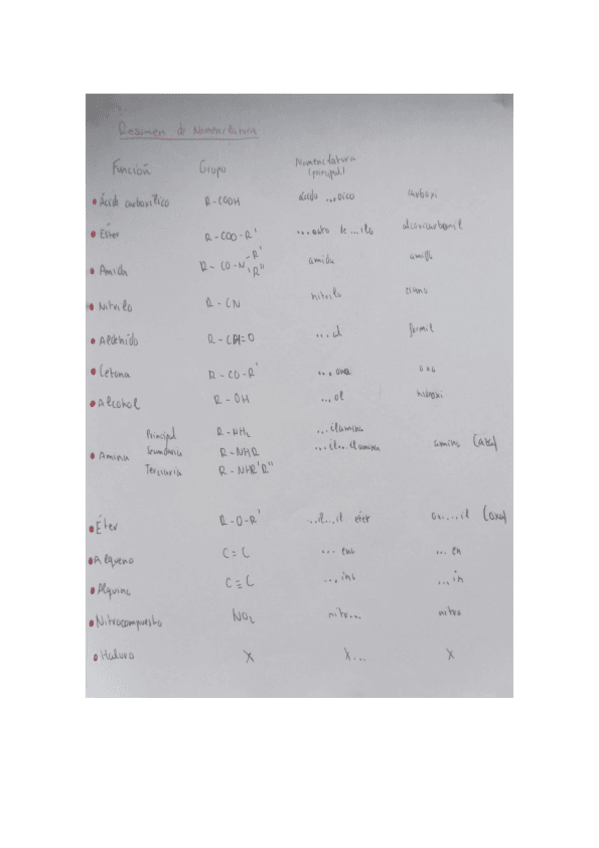 Resumen de Nomenclatura
Función Grupo Nomenclatura (principal)
Ácido carboxílico R-COOH ácido ...oico carboxi
Éster R-COO-R' ...ato de ...ilo alcoxicarbonil
Amida R-CO-N-R' R'' amida
Nitrilo R-CN nitrilo ciano
Aldehído R-CH=O ...al formil
Cetona R-CO-R' ...ona oxo
Alcohol R-OH ...ol hidroxi
Principal R-NH₂ ...ilamina
Amina Secundaria R-NHR ...il...ilamina amino (aza)
Terciaria R-NHR'R''
Éter R-O-R' ...il...il éter ox...il (oxa)
Alqueno C=C ...eno ...en
Alquino C≡C ...ino ...in
Nitrocompuesto NO₂ nitro... nitro
Haluro X X... X